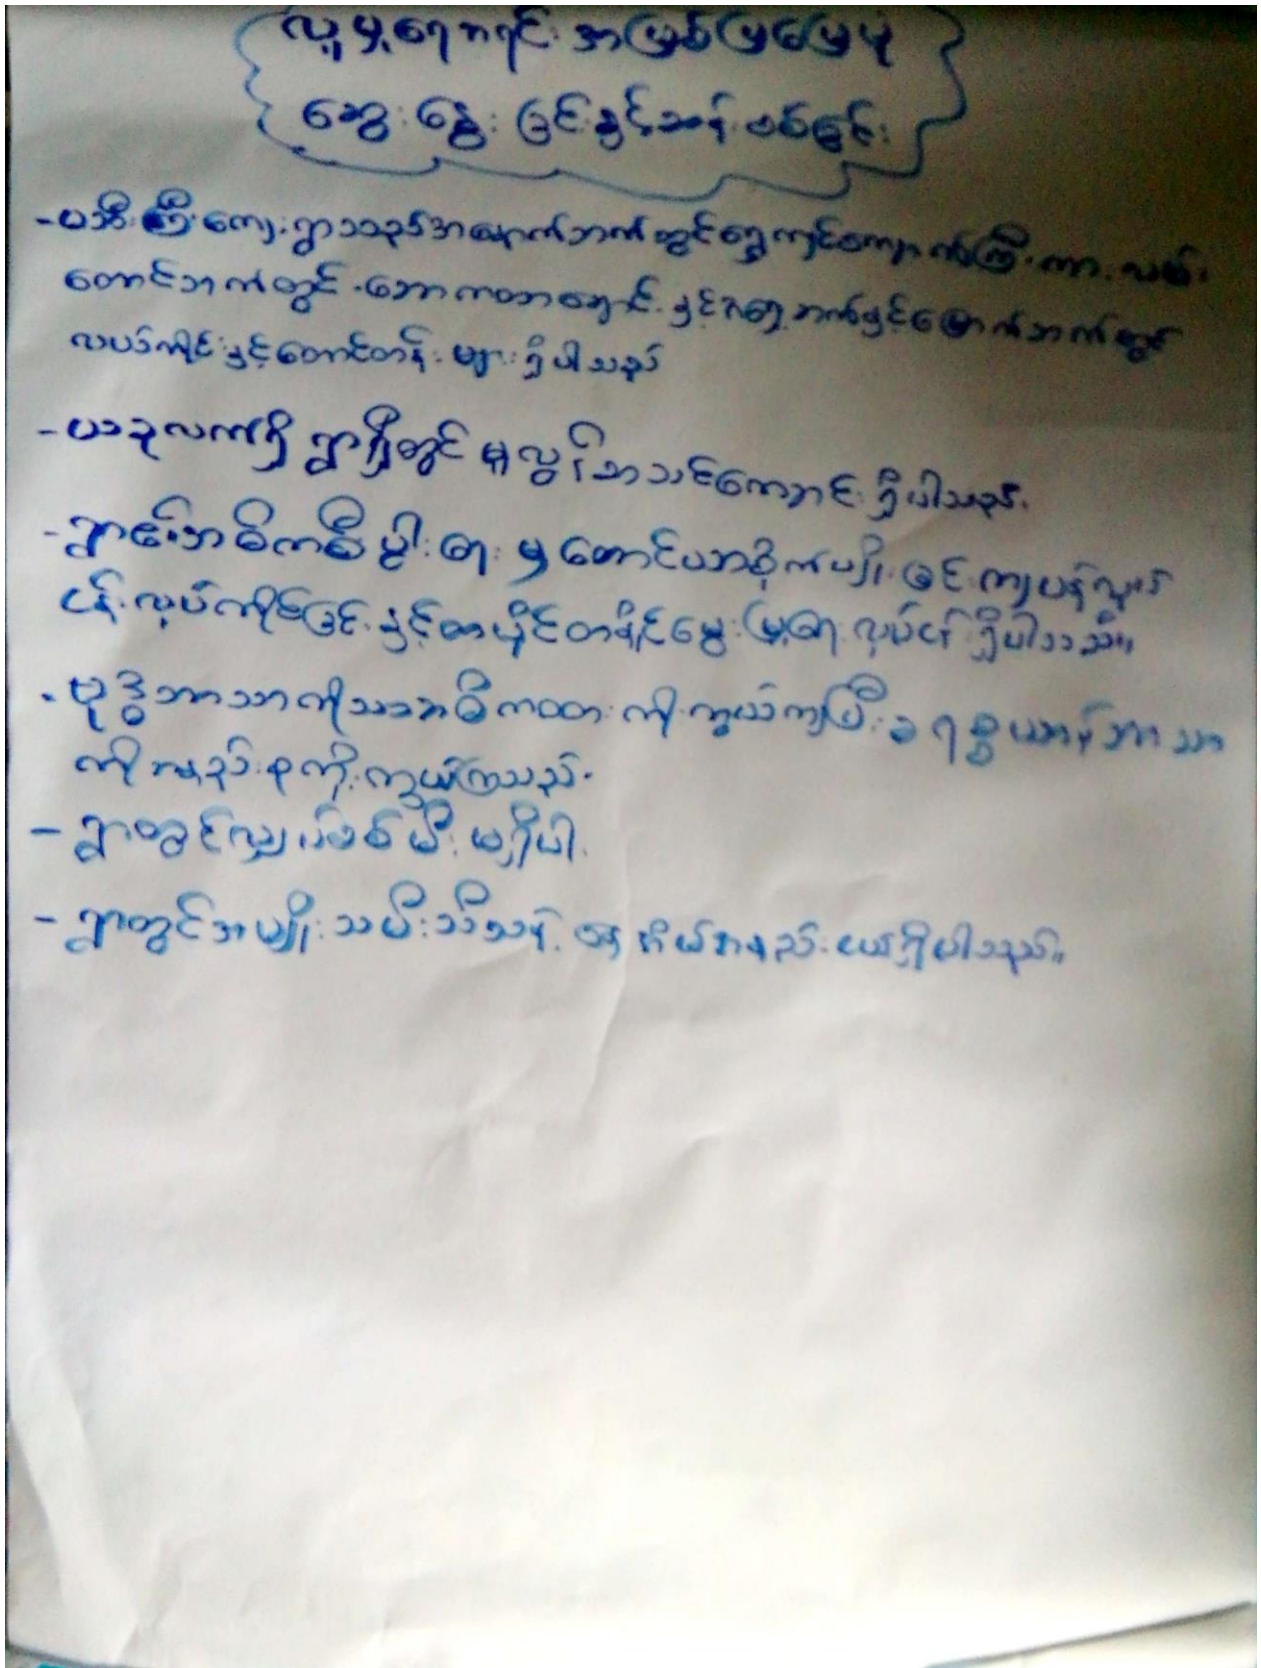 လူမှုရေအရင်းအမြစ်ပြမြေပုံ
ဆွေးနွေးခြင်းနှင့်ဆန်းစစ်ခြင်း
-ပသီကြီးကျေးရွာသည်အနောက်ဘက်တွင်ရွှေကျင်ကျောက်ကြီးကားလမ်း
တောင်ဘက်တွင် နှင့်အရှေ့ဘက်နှင့်မြောက်ဘက်တွင်
လယ်ကိုင်းနှင့်တောင်တန်းများရှိပါသည်
-ယခုလက်ရှိရွာရှိတွင်မူလွန်အသင်းကောင်းရှိပါသည်.
-ရွာ၏အဓိကစီးပွါးရေးမှတောင်ယာစိုက်ပျိုးခြင်းကျပန်းလုပ်
ငန်းလုပ်ကိုင်ခြင်းနှင့်တပိုင်တနိုင်မွေးမြူရေးလုပ်ငန်းရှိပါသည်။
-ဗုဒ္ဓဘာသာကိုသာအဓိကထားကိုးကွယ်ကျပြီးခရစ္စယာန်ဘာသာ
ကိုအနည်းစုကိုးကွယ်ကြသည်.
-ရွာတွင်လျှပ်စစ်မီးမရှိပါ.
-ရွာတွင်အမျိုးသမီးသီးသန့် အနည်းငယ်ရှိပါသည်။